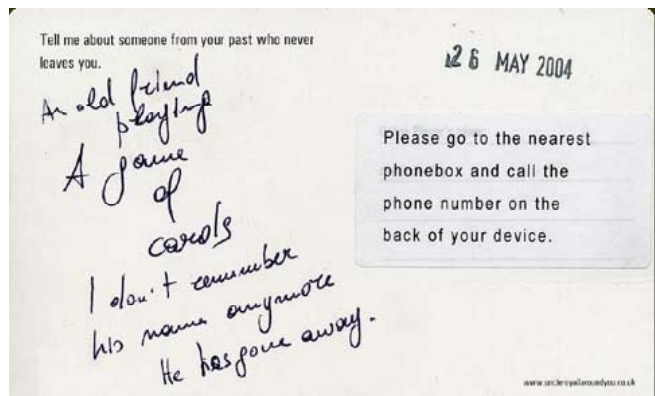 Tell me about someone from your past who never
leaves you.
26 MAY 2004
An old friend
playing
A game
of
cards
I don't remember
his name anymore
He has gone away.
Please go to the nearest
phonebox and call the
phone number on the
back of your device.
www.uncleroyallaroundyou.co.uk